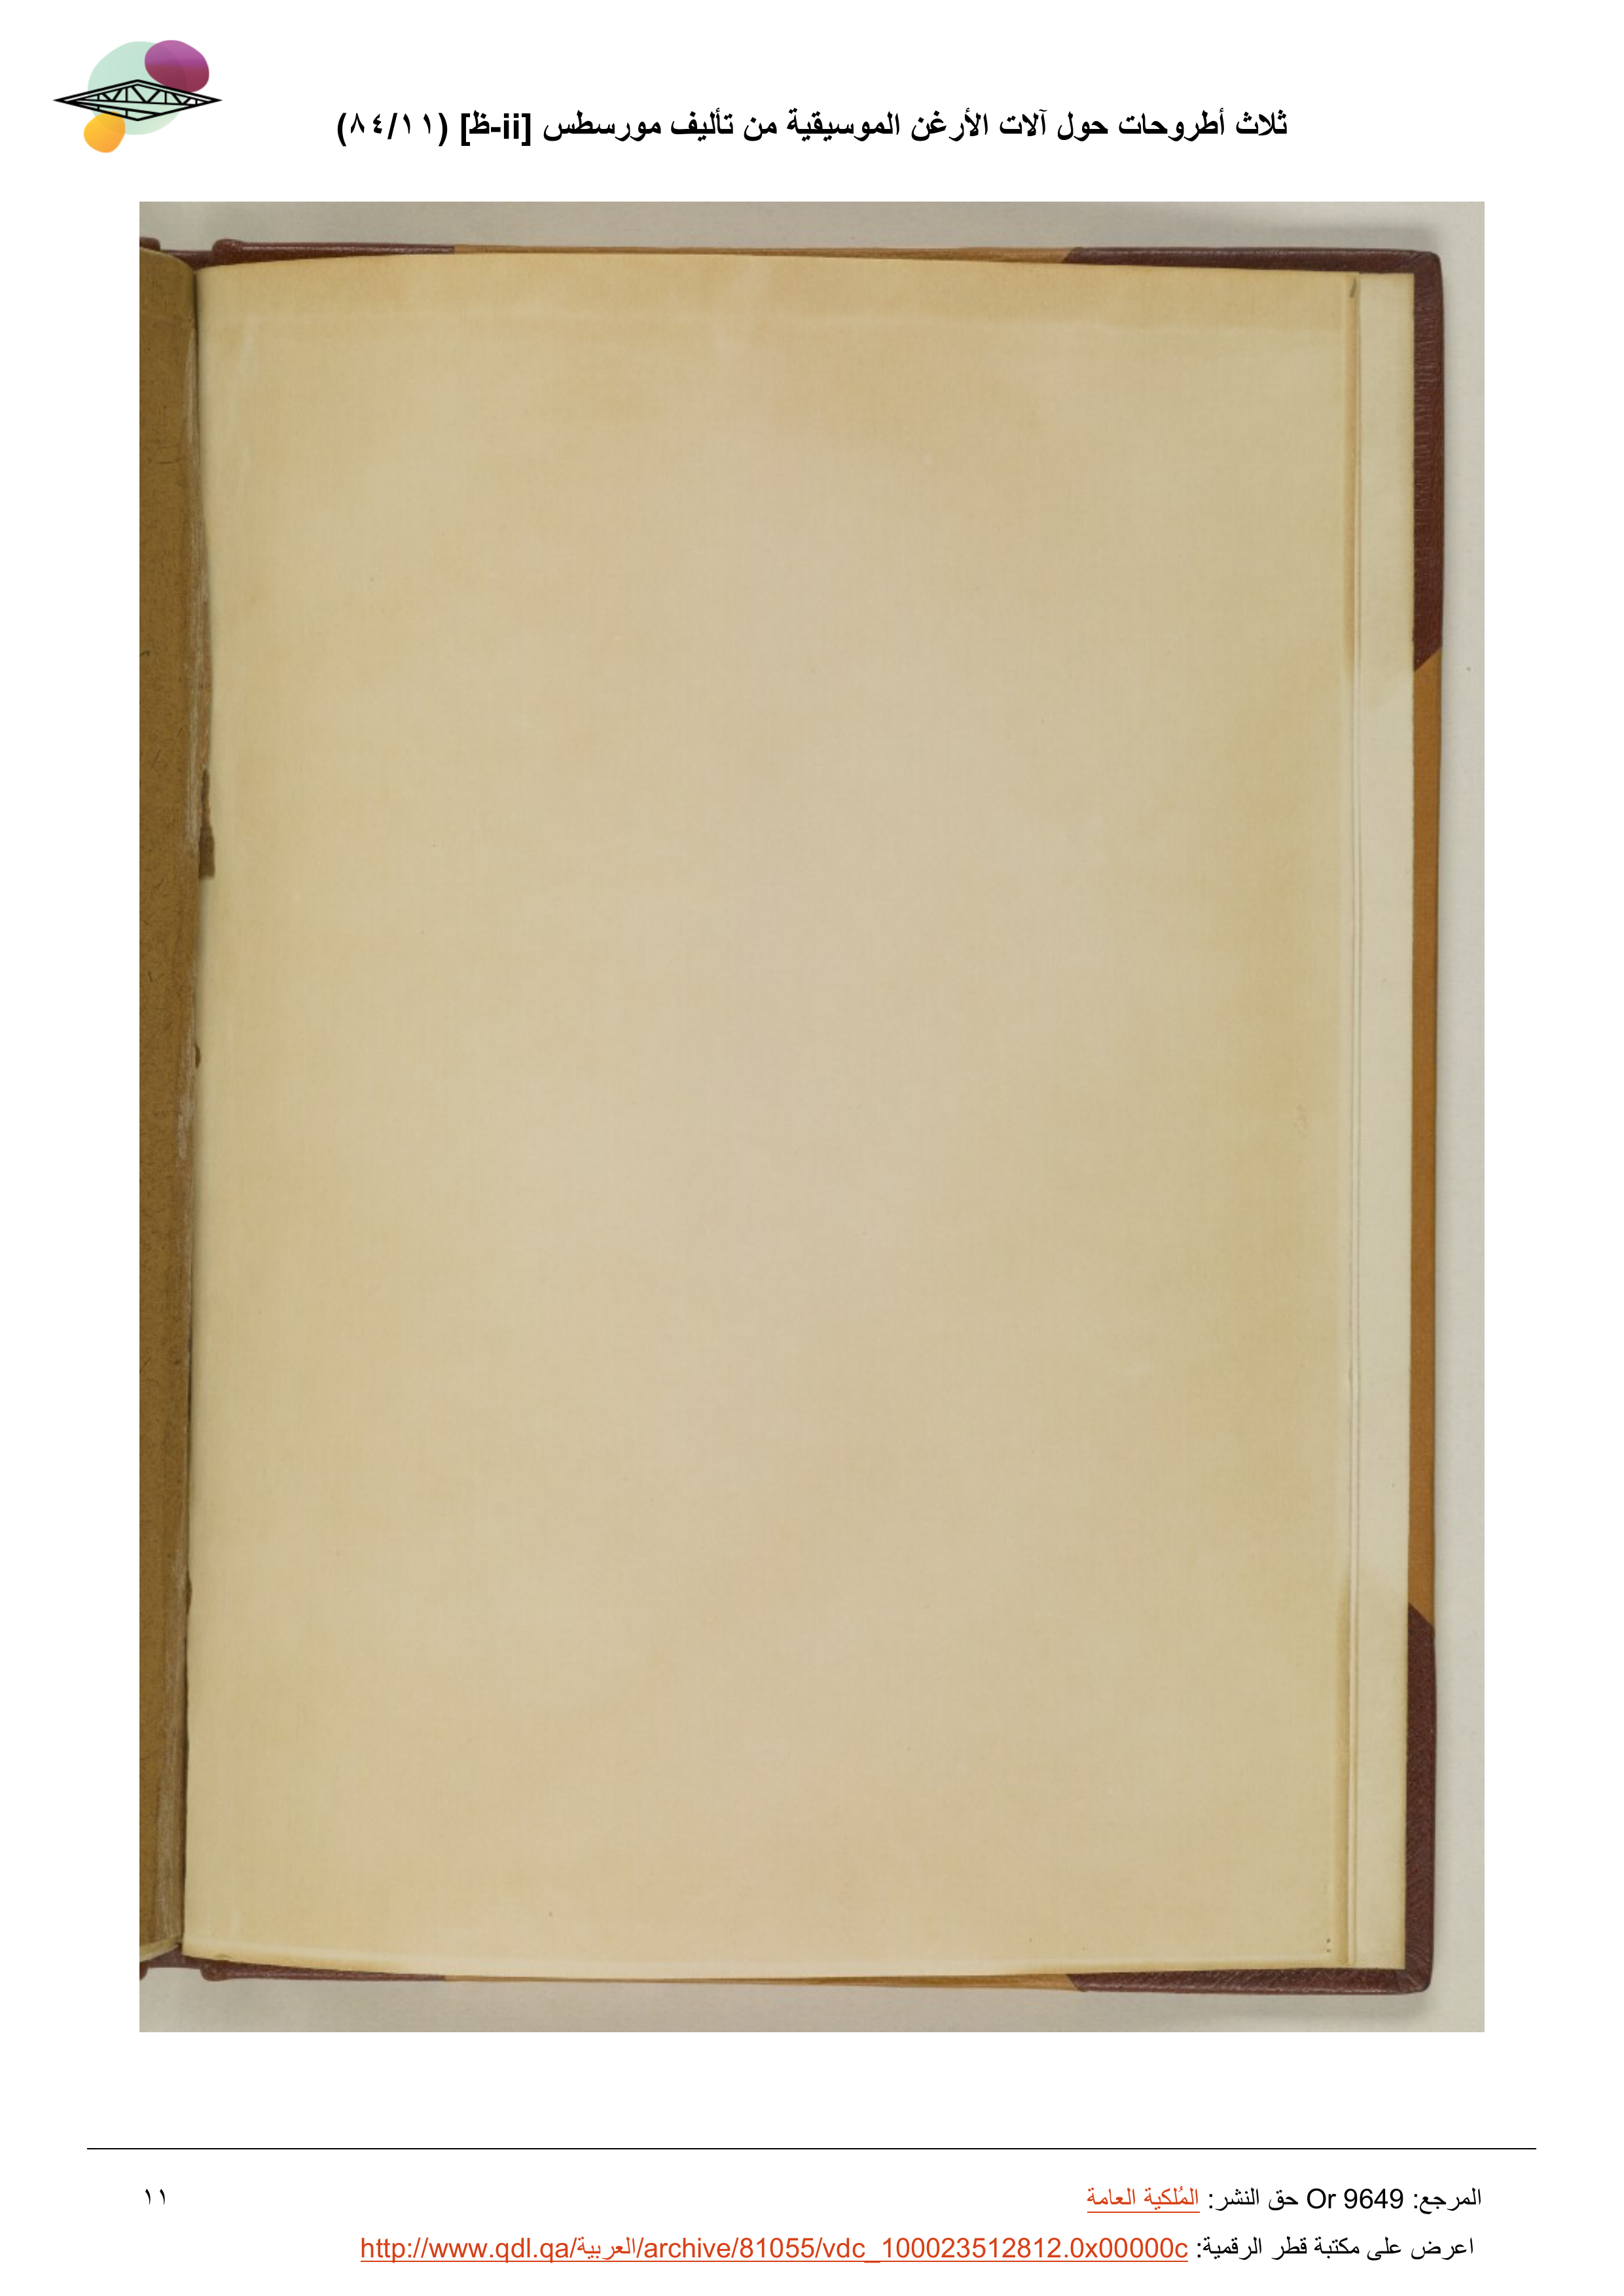 ثلاث أطروحات حول آلات الأرغن الموسيقية من تأليف مورسطس [ii-ظ] (٨٤/١١)
المرجع: Or 9649 حق النشر: المُلكية العامة
١١
اعرض على مكتبة قطر الرقمية: http://www.qdl.qa/العربية/archive/81055/vdc_100023512812.0x00000c